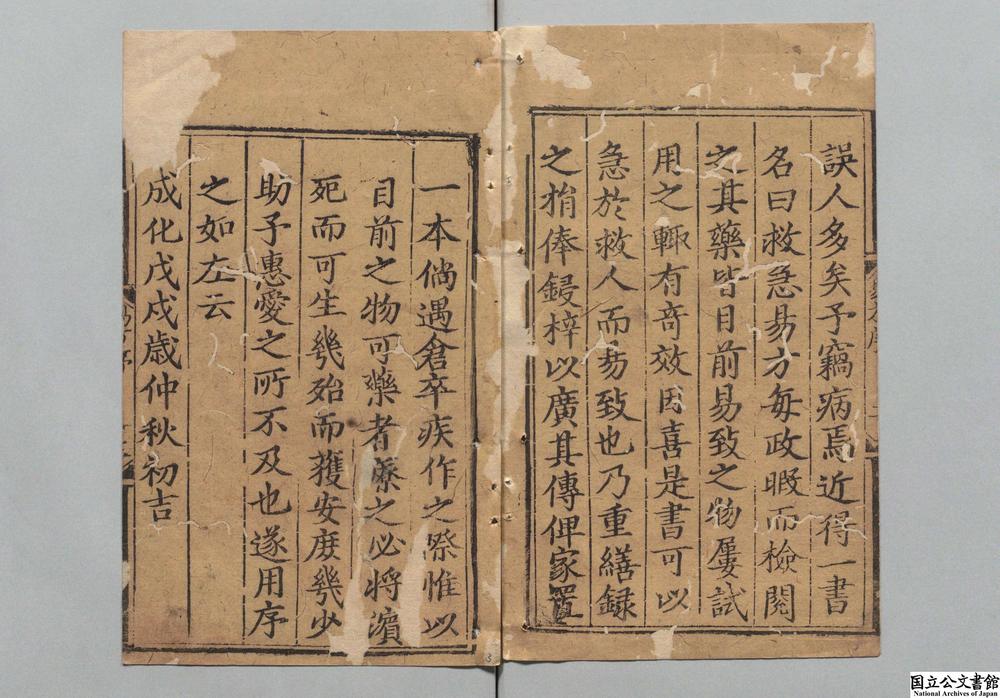 誤人多矣予竊病焉近得一書
名曰救急易方每政暇而檢閱
之其藥皆目前易致之物屢試
用之輙有竒效因喜是書可以
急於救人而易致也乃重繕録
之捐俸鋟梓以廣其傳俾家置
一本倘遇倉卒疾作之際惟以
目前之物可藥者療之必將濵
死而可生幾殆而獲安庻幾少
助予惠愛之所不及也遂用序
之如左云
成化戊戍歳仲秋初吉
国立公文書館
National Archives of Japan